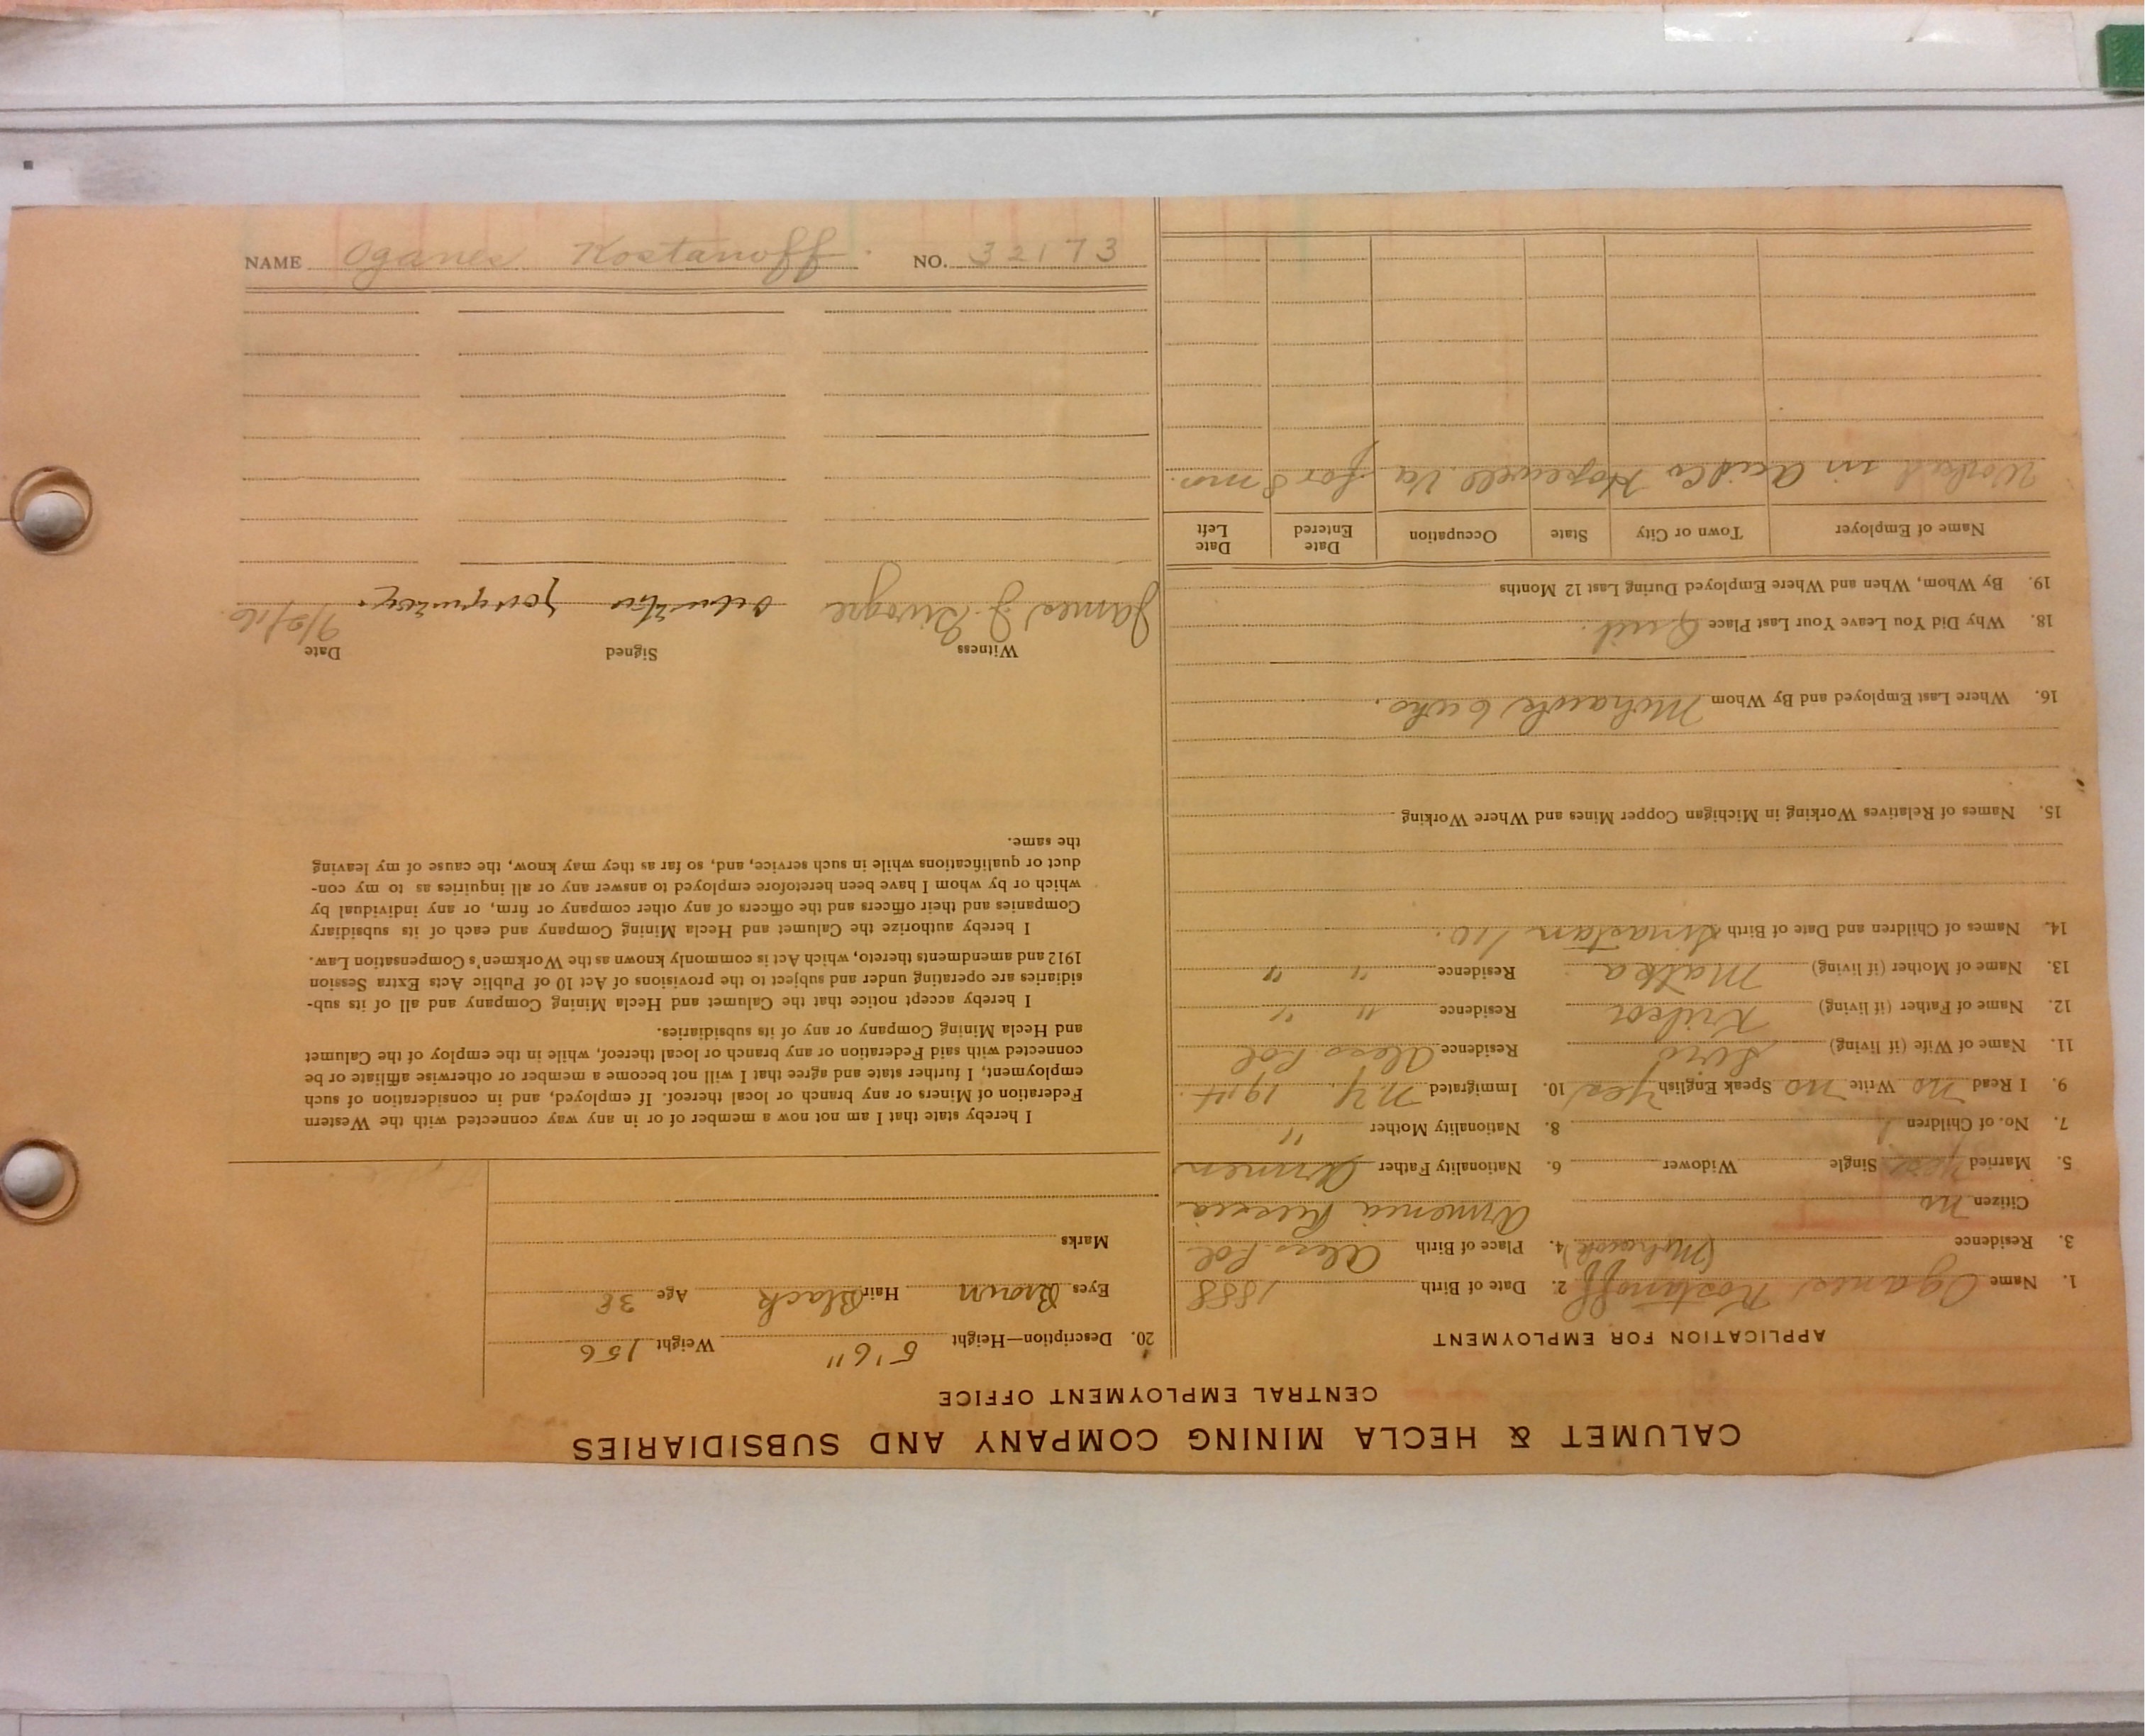 NAME Oganes Kostanoff. NO. 32173
CALUMET & HECLA MINING COMPANY AND SUBSIDIARIES
CENTRAL EMPLOYMENT OFFICE
APPLICATION FOR EMPLOYMENT
1. Name Oganes Kostanoff 2. Date of Birth 1888
3. Residence (Mohawk) 4. Place of Birth Alex Pol
Citizen no Armenia Russia
5. Married yes Single Widower 6. Nationality Father Armen
7. No. of Children 1 8. Nationality Mother "
9. I Read no Write no Speak English yes 10. Immigrated N.Y. 1914.
11. Name of Wife (if living) Residence Alex Pol
12. Name of Father (if living) Krikor Residence " "
13. Name of Mother (if living) Matka Residence " "
14. Names of Children and Date of Birth 10.
15. Names of Relatives Working in Michigan Copper Mines and Where Working
16. Where Last Employed and By Whom Mohawk
18. Why Did You Leave Your Last Place Quit.
19. By Whom, When and Where Employed During Last 12 Months
Name of Employer Town or City State Occupation Date Entered Date Left
Worked in Hopewell Va for 8 mo.
20. Description—Height 5'6" Weight 156
Eyes Brown Hair Black Age 38
Marks
I hereby state that I am not now a member of or in any way connected with the Western
Federation of Miners or any branch or local thereof. If employed, and in consideration of such
employment, I further state and agree that I will not become a member or otherwise affiliate or be
connected with said Federation or any branch or local thereof, while in the employ of the Calumet
and Hecla Mining Company or any of its subsidiaries.
I hereby accept notice that the Calumet and Hecla Mining Company and all of its sub-
sidiaries are operating under and subject to the provisions of Act 10 of Public Acts Extra Session
1912 and amendments thereto, which Act is commonly known as the Workmen's Compensation Law.
I hereby authorize the Calumet and Hecla Mining Company and each of its subsidiary
Companies and their officers and the officers of any other company or firm, or any individual by
which or by whom I have been heretofore employed to answer any or all inquiries as to my con-
duct or qualifications while in such service, and, so far as they may know, the cause of my leaving
the same.
Witness Signed Date
James J. 9/2/16